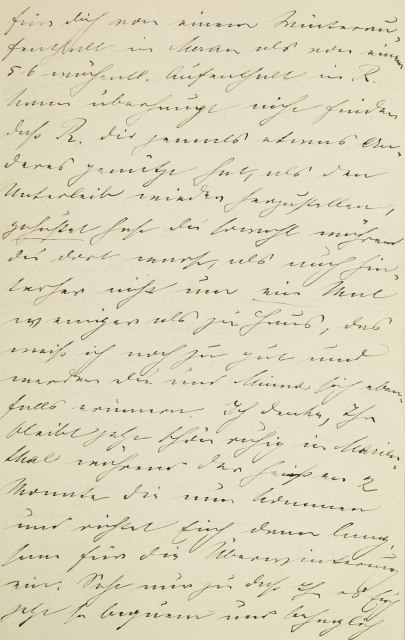 für dich von einem Winterau-
fenthalt in Meran als von einem
5 6 wöchentl. Aufenthalt in R.
kann überhaupt nicht finden
daß R. dir jemals etwas An-
deres genützt hat, als den
Unterleib wieder herzustellen,
gehustet hast du sowohl während
du dort warst, als auch hin-
terher nicht um ein Mal
weniger als zu Haus, das
weiß ich noch zu gut und
werden du und Minna sich eben-
falls erinnern. Ich denke, Ihr
bleibt jetzt schön ruhig in Marien-
thal während der heißen 2
Monate die nun kommen
und richtet Euch dann lang-
sam für die Überwinterung
ein. Seht nur zu daß Ihr es Euch
jetzt so bequem und behaglich